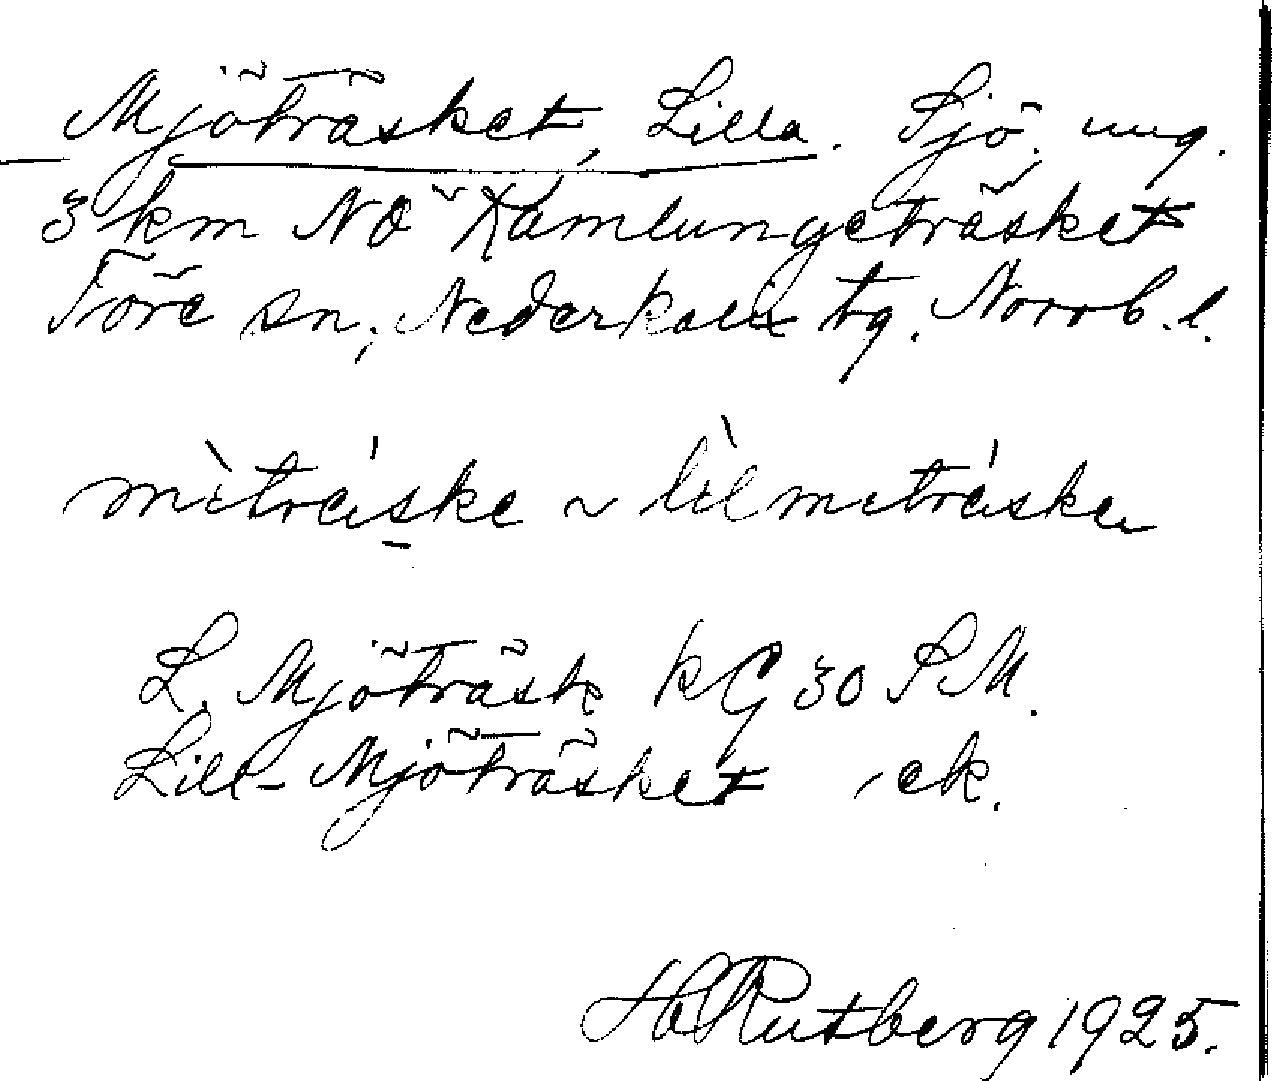 Mjöträsket, Lilla. Sjö, ung.
3 km NO Kamlungeträsket
Töre sn, Nederkalix tg. Norrb. l.
mìtráiske ~ lìlmitráiske
L. Mjöträsk KG 30 SM.
Lill-Mjöträsket ek.
H Rutberg 1925.